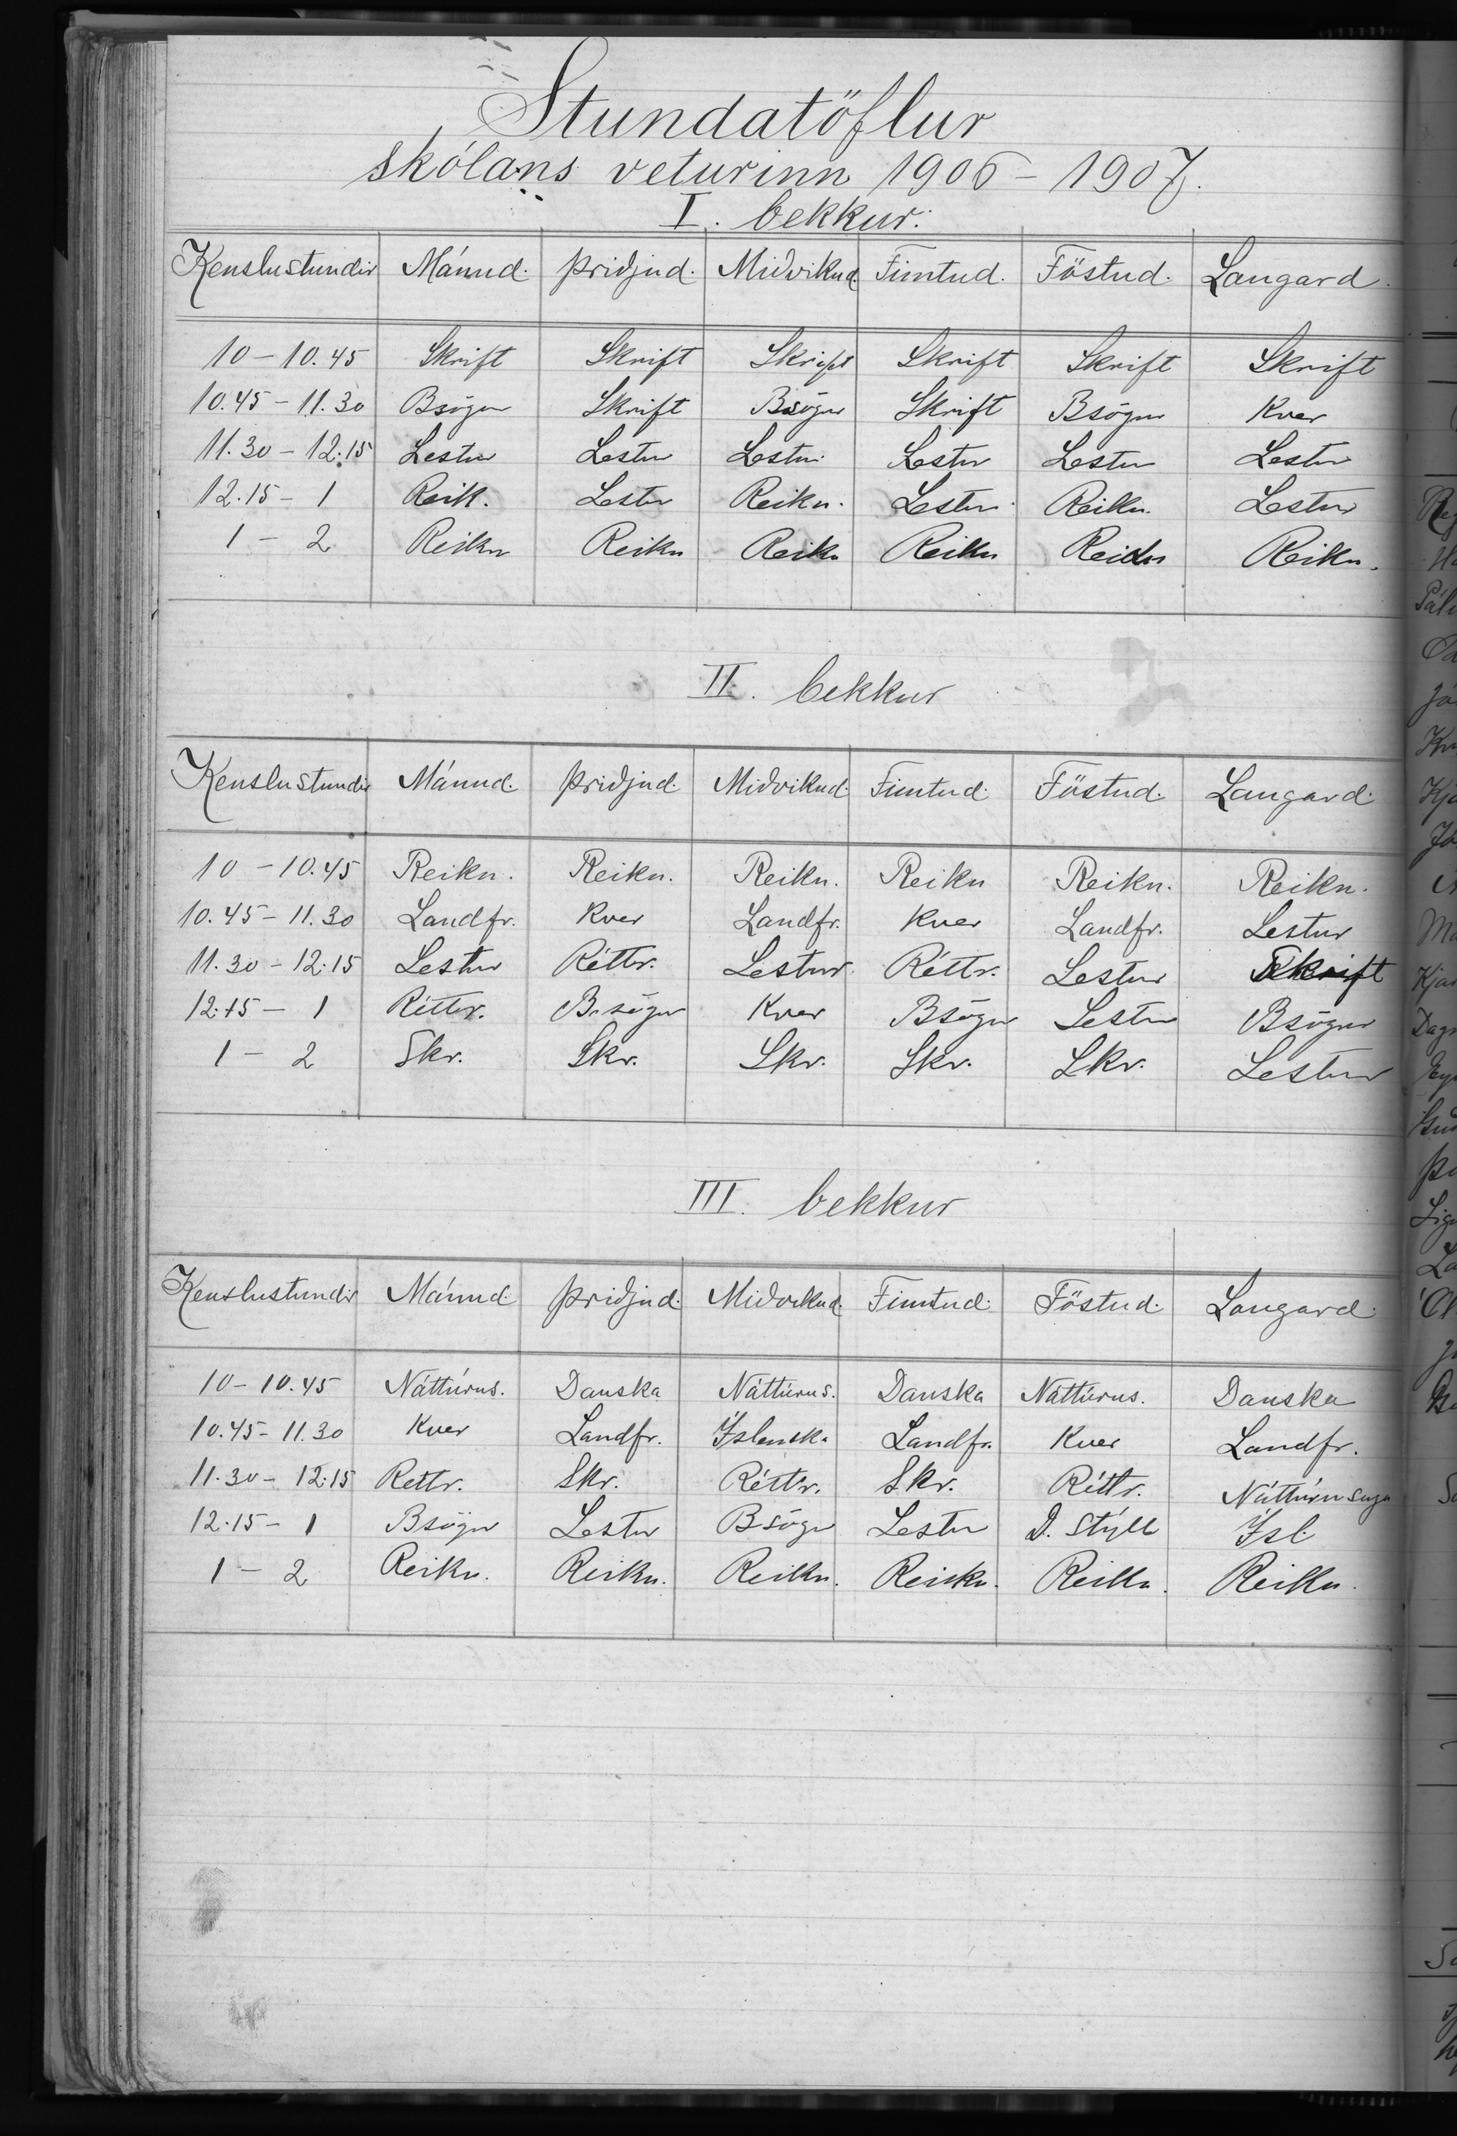 Stundatöflur
skólans veturinn 1906 – 1907.
I. bekkur.
Kenslustundir Mánud. Þriðjud. Miðvikud. Fimtud. Föstud. Laugard.
10 – 10.45 Skrift Skrift Skrift Skrift Skrift Skrift
10.45 – 11.30 Bsögur Skrift Bsögur Skrift Bsögur Kver
11.30 – 12.15 Lestur Lestur Lestur Lestur Lestur Lestur
12.15 – 1 Reik. Lestur Reikn. Lestur Reikn. Lestur
1 – 2 Reikn Reikn Reikn Reikn Reikn Reikn.
II. bekkur
Kenslustundir Mánud. Þriðjud. Miðvikud. Fimtud. Föstud. Laugard.
10 – 10.45 Reikn. Reikn. Reikn. Reikn Reikn. Reikn.
10.45 – 11.30 Landfr. Kver Landfr. Kver Landfr. Lestur
11.30 – 12.15 Lestur Réttr. Lestur Réttr. Lestur Skrift
12.15 – 1 Réttr. B.sögur Kver Bsögur Lestur Bsögur
1 – 2 Skr. Skr. Skr. Skr. Skr. Lestur
III. bekkur
Kenslustundir Mánud. Þriðjud. Miðvikud. Fimtud. Föstud. Laugard.
10 – 10.45 Náttúrus. Danska Náttúrus. Danska Náttúrus. Danska
10.45 – 11.30 Kver Landfr. Íslenska Landfr. Kver Landfr.
11.30 – 12.15 Réttr. Skr. Réttr. Skr. Réttr. Náttúrusaga
12.15 – 1 Bsögur Lestur Bsögur Lestur D. Stýll Ísl.
1 – 2 Reikn. Reikn. Reikn. Reikn. Reikn. Reikn.